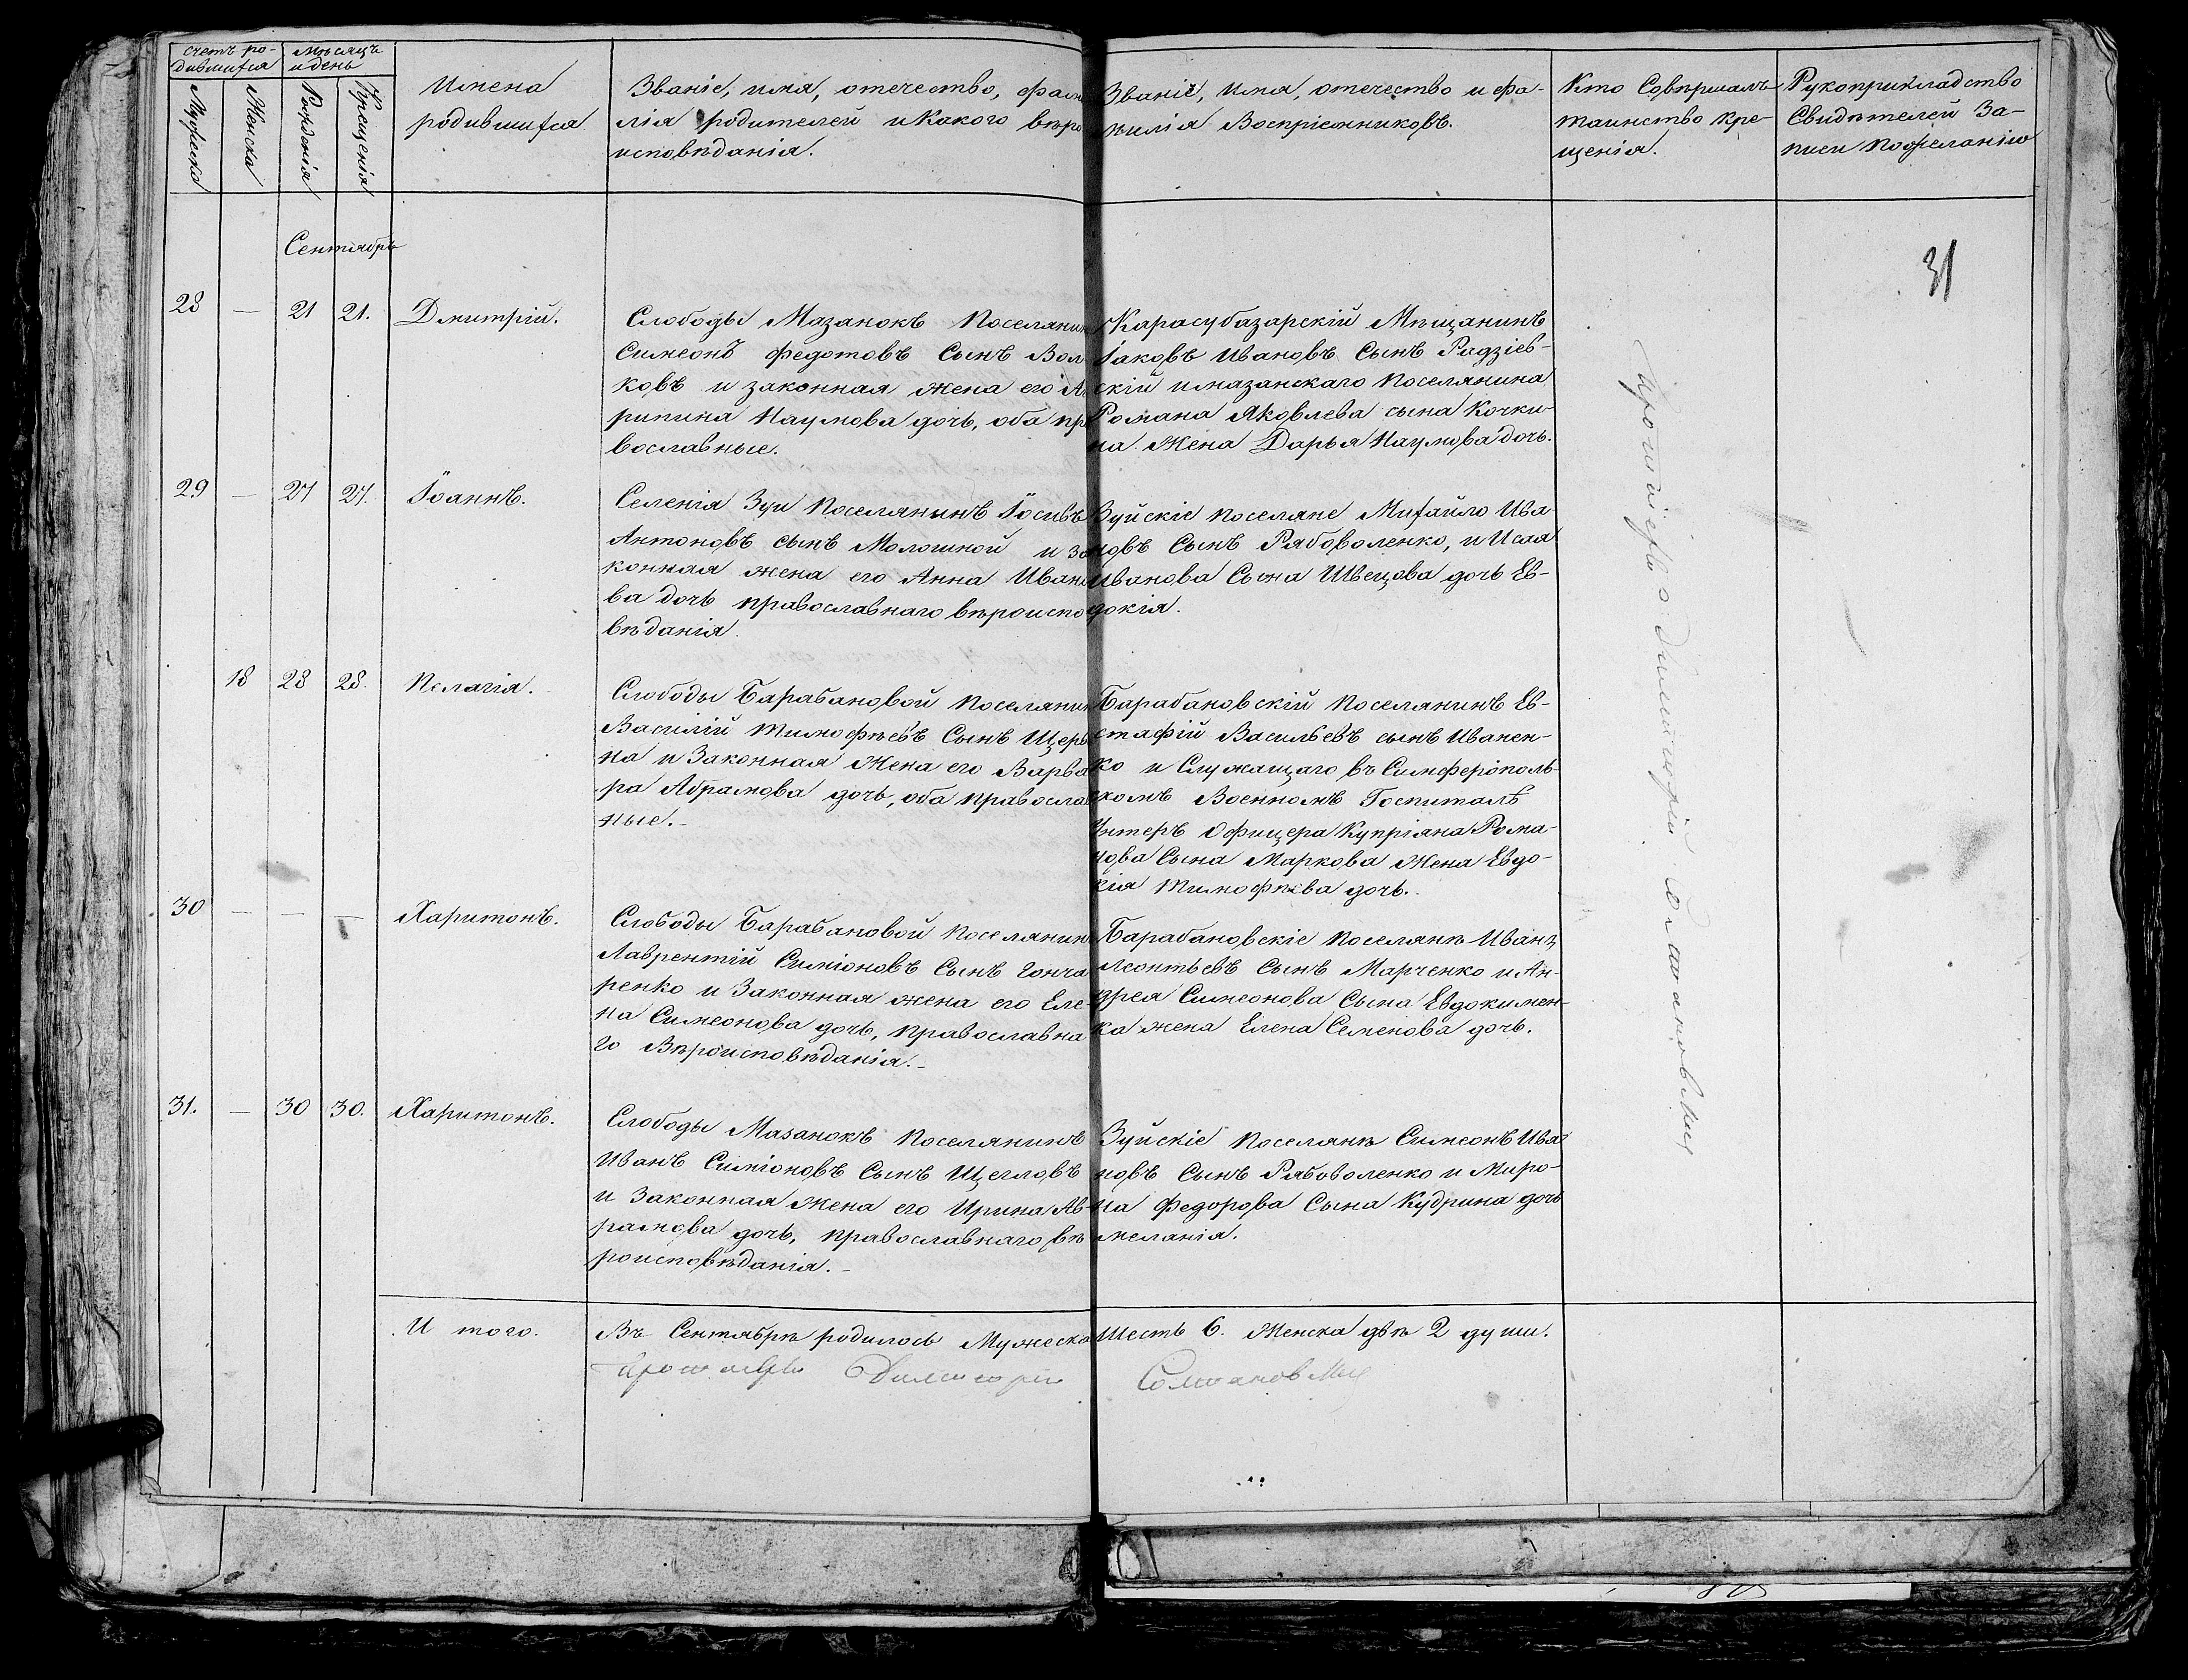 Счетъ ро-
дившихся
Мѣсяцъ
и день
Мужеска
Женска
Рожденія
Крещенія
Имена
родившихся
Званіе, имя, отечество, фами
лія родителей и какого вѣро
исповѣданія.
Званіе, имя, отечество и фа-
милія Воспріемниковъ.
Кто Совершалъ
таинство кре-
щенія.
Рукоприкладство
Свидѣтелей За-
писи по желанію
31
Сентябрь
28 — 21 21. Дмитрій.
Слободы Мазанокъ Поселянинъ
Симеонъ Федотовъ Сынъ Вол
ковъ и законная жена его Аг
рипина Наумова дочь, оба пра
вославные.
Карасубазарскій Мѣщанинъ
Іаковъ Ивановъ Сынъ Радзіев-
скій и мазанскаго поселянина
Романа Яковлева сына Кочки-
на Жена Дарья Наумова дочь.
29 — 27 27. Іоаннъ.
Селенія Зуи Поселянинъ Іосифъ
Антоновъ сынъ Молошной и за
конная жена его Анна Ивано
ва дочь православнаго вѣроиспо
вѣданія.
Зуйскіе поселяне Михайло Ива
новъ Сынъ Рябоволенко, и Исая
Иванова Сына Швецова дочь Ев-
докія.
18 28 28. Пелагія.
Слободы Барабановой поселянинъ
Василій Тимофѣевъ Сынъ Щерб
на и Законная Жена его Варва
ра Абрамова дочь, оба православ
ные.-
Барабановскій Поселянинъ Ев-
стафій Васильевъ сынъ Иванен-
ко и Служащаго въ Симферополь-
скомъ Военномъ Госпиталѣ
Унтеръ Офицера Купріяна Рома-
нова Сына Маркова Жена Евдо-
кія Тимофѣева дочь.
30 — — — Харитонъ.
Слободы Барабановой поселянинъ
Лаврентій Симіоновъ Сынъ Гонча
ренко и Законная жена его Еле-
на Симеонова дочь, православна
го Вѣроисповѣданія.-
Барабановскіе поселянѣ Иванъ
Леонтьевъ Сынъ Марченко и Ан-
дрея Симеонова Сына Евдокимен-
ка жена Елена Семенова дочь.
31. — 30 30. Харитонъ.
Слободы Мазанокъ Поселянинъ
Иванъ Симіоновъ Сынъ Щегловъ
и Законная Жена его Ирина Ав-
рамова дочь, православнаго вѣ
роисповѣданія.-
Зуйскіе Поселянѣ Симеонъ Ива
новъ Сынъ Рябоволенко и Миро-
на Федорова Сына Кудрина дочь
Меланія.
Протоіерей Димитрій
И того. Въ Сентябрѣ родилось Мужеска Шесть 6. Женска двѣ 2 души.
Протоіерей Димитрій